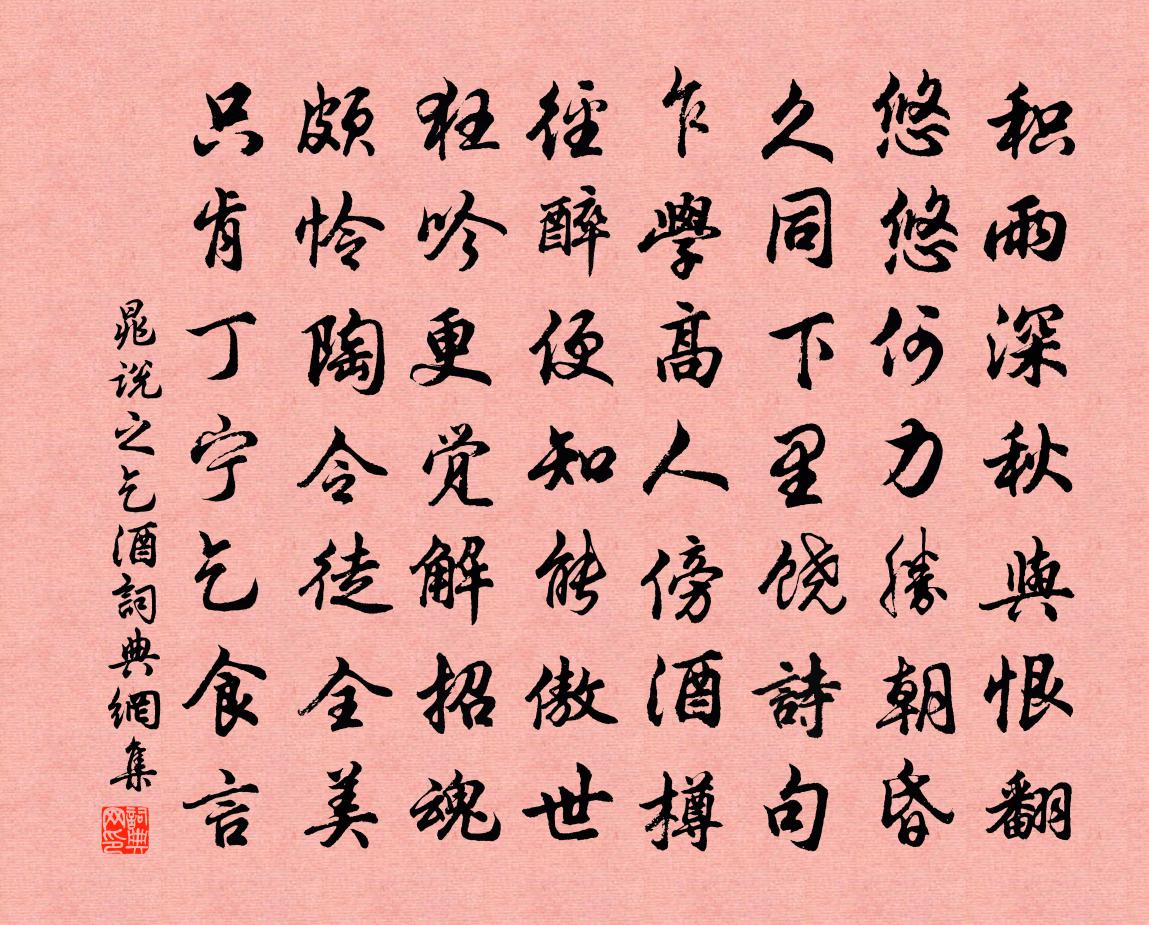 积雨深秋與恨翻
悠悠何力勝朝昏
久同下里饶詩句
乍學高人傍酒樽
徑醉便知能傲世
狂吟更觉解招魂
頗怜陶令徒全美
只肯丁宁乞食言
晁说之乞酒詞典網集
詞典网印